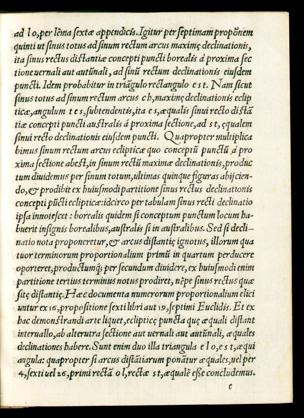 ad l o, per lẽma sextæ appendicis. Igitur per septimam propõnem
quinti ut sinus totus ad sinum rectum arcus maximę declinationis,
ita sinus rectus distantiæ concepti puncti borealis à proxima sec
tione uernali aut autũnali, ad sinũ rectum declinationis eiusdem
puncti. Idem probabitur in triãgulo rectangulo e s t. Nam sicut
sinus totus ad sinum rectum arcus c h, maximę declinationis eclip
ticæ, angulum t e s, subtendentis, ita e s, æqualis sinui recto distã
tiæ concepti puncti australis à proxima sectione, ad s t, equalem
sinui recto declinationis eiusdem puncti. Quapropter multiplica
bimus sinum rectum arcus eclipticæ quo conceptũ punctũ à pro
xima sectione abest, in sinum rectũ maximæ declinationis, produc
tum diuidemus per sinum totum, ultimas quinque figuras abijcien-
do, & prodibit ex huiusmodi partitione sinus rectus declinationis
concepti pũcti eclipticæ: idcirco per tabulam sinus recti declinatio
ipsa innotescet: borealis quidem si conceptum punctum locum ha-
buerit in signis borealibus, australis si in australibus. Sed si decli-
natio nota proponeretur, & arcus distantię ignotus, illorum qua
tuor terminorum proportionalium primũ in quartum perducere
oporteret, productumq́; per secundum diuidere, ex huiusmodi enim
partitione tertius terminus notus prodiret, nẽpe sinus rectus quæ
sitę distantię. Hæc documenta numerorum proportionalium elici
untur ex 16, propositione sexti libri aut 19, septimi Euclidis. Et ex
hac demonstrandi arte liquet, eclipticę puncta quę æquali distant
interuallo, ab alterutra sectione aut uernali aut autũnali, æquales
declinationes habere. Sunt enim duo illa triangula e l o, e s t, æqui
angula: quapropter si arcus distãtiarum ponãtur æquales, uel per
4, sexti uel 26, primi rectã o l, rectæ s t, æqualẽ esse concludemus.
c